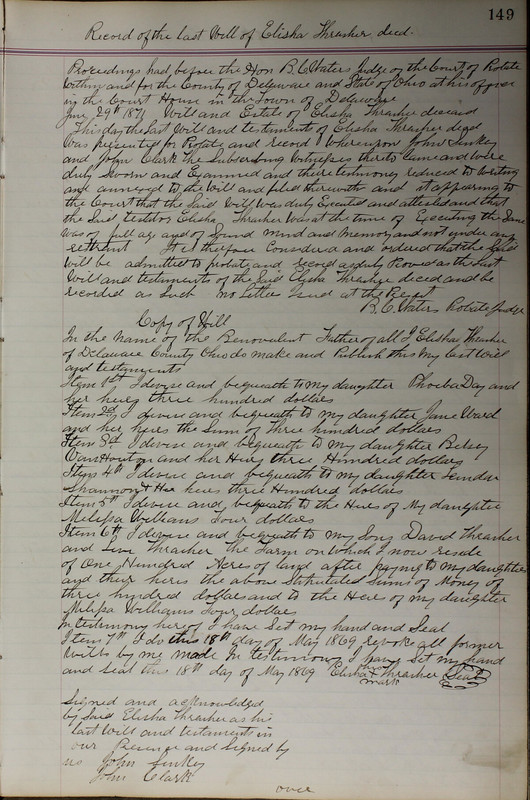 149
Record of the last Will of Elisha Thrasher decd.
Proceedings had before the Hon B. C. Waters Judge of the Court of Probate
Withing and for the County of Delaware and State of Ohio at his office
in the Court House in the Town of Delaware
June 29th 1871 Will and Estate of Elisha Thrasher deceased
This day the Last Will and testiments of Elisha Thrasher decd
was presented for Probate and record Whereupon John Finkey
and John Clark the Subscribing Witnesses thereto came and were
duly Sworn and Examined and their testimoney reduced to writing
and annexed to the Will and filed therewith and it appearing to
the Court that the Said Will was duly Executed and attested and that
the Said testator Elisha Thrasher was at the time of Executing the Same
was of full age and of Sound Mind and Memory and not under any
restraint It is therefore Considered and ordered that the Said
Will be admitted to probate and record as duly Proved as the Last
Will and testiments of the Said Elisha Thrasher deced and be
recorded as Such no Letters Issued at the
B. C. Waters Probate Judge
Copy of Will
In the Name of the Benovolent Father of all I Elisha Thrasher
of Delaware County Ohio do make and Publish this My last Will
and testiments
Item 1st I devise and bequeath to my daughter Phoeba Day and
her heirs three hundred dollars
Item 2nd I devise and bequeath to my daughter Jane Ward
and her heirs the Sum of three hundred dollars
Item 3d I devise and bequeath to my daughter Betsey
VanHouton and her Heirs three Hundred dollars
Item 4th I devise and bequeath to my daughter
Shannon & Her heirs three Hundred dollars
Item 5th I devise and bequeath to the Heirs of My daughter
Melissa Williams Four dollars
Item 6th I devise and bequeath to my Sons David Thrasher
and Thrasher the Farm on which I now reside
of One Hundred Acres of land after paying to my daughters
and their heirs the above Sums of Money of
three hundred dollars and to the Heirs of my daughter
Melissa Williams Four dollars
In testimony hereof I have Set my hand and Seal
Item 7th I do this 18th day of May 1869 revoke all former
Wills by me made In testimony I have Set my hand
and Seal this 18th day of May 1869 Elisha his X mark Thrasher Seal
Signed and acknoledged
by Said Elisha Thrasher as his
last will and testiments in
our Presence and Signed by
us John Finkey
John Clark
over